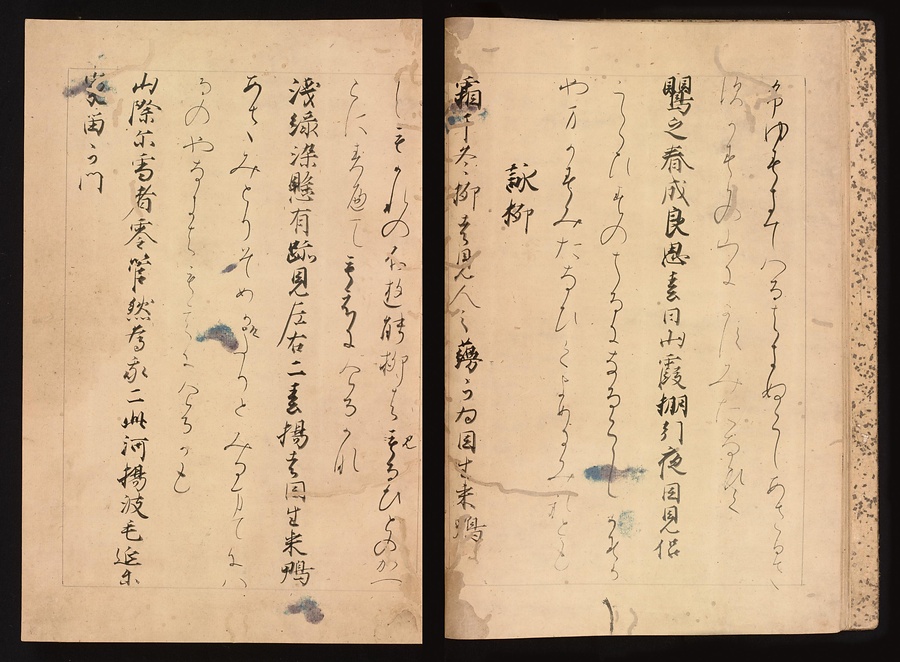 ふゆすきてはるはきぬらしあさひさす
かすかのやまにかすみたなひく
鸎之春成良思春日山霞棚引夜目見侶
うくひすのはるになるらしかすか
やまかすみたなひくよめにみれとも
詠柳
霜干冬柳者見人之蘰可為目生来鴨
しもかれの不遊能柳はみるひとのかつ
らに
浅緑染懸有跡見左右二春楊者目生来鴨
あさみとりそめかけたりとみるまてには
るのやなきはもえにけるかも
山際尓雪者零管然為我二此河楊波毛延尓
家留可聞